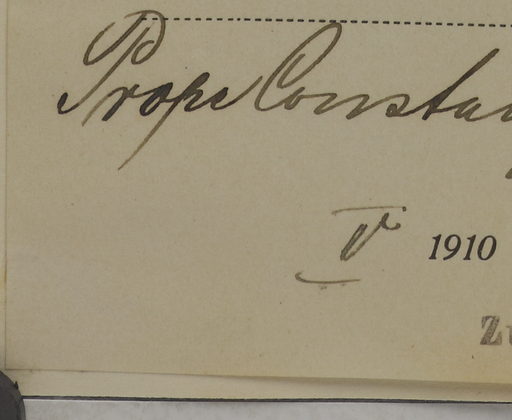 Prope Constan
V 1910
Zu